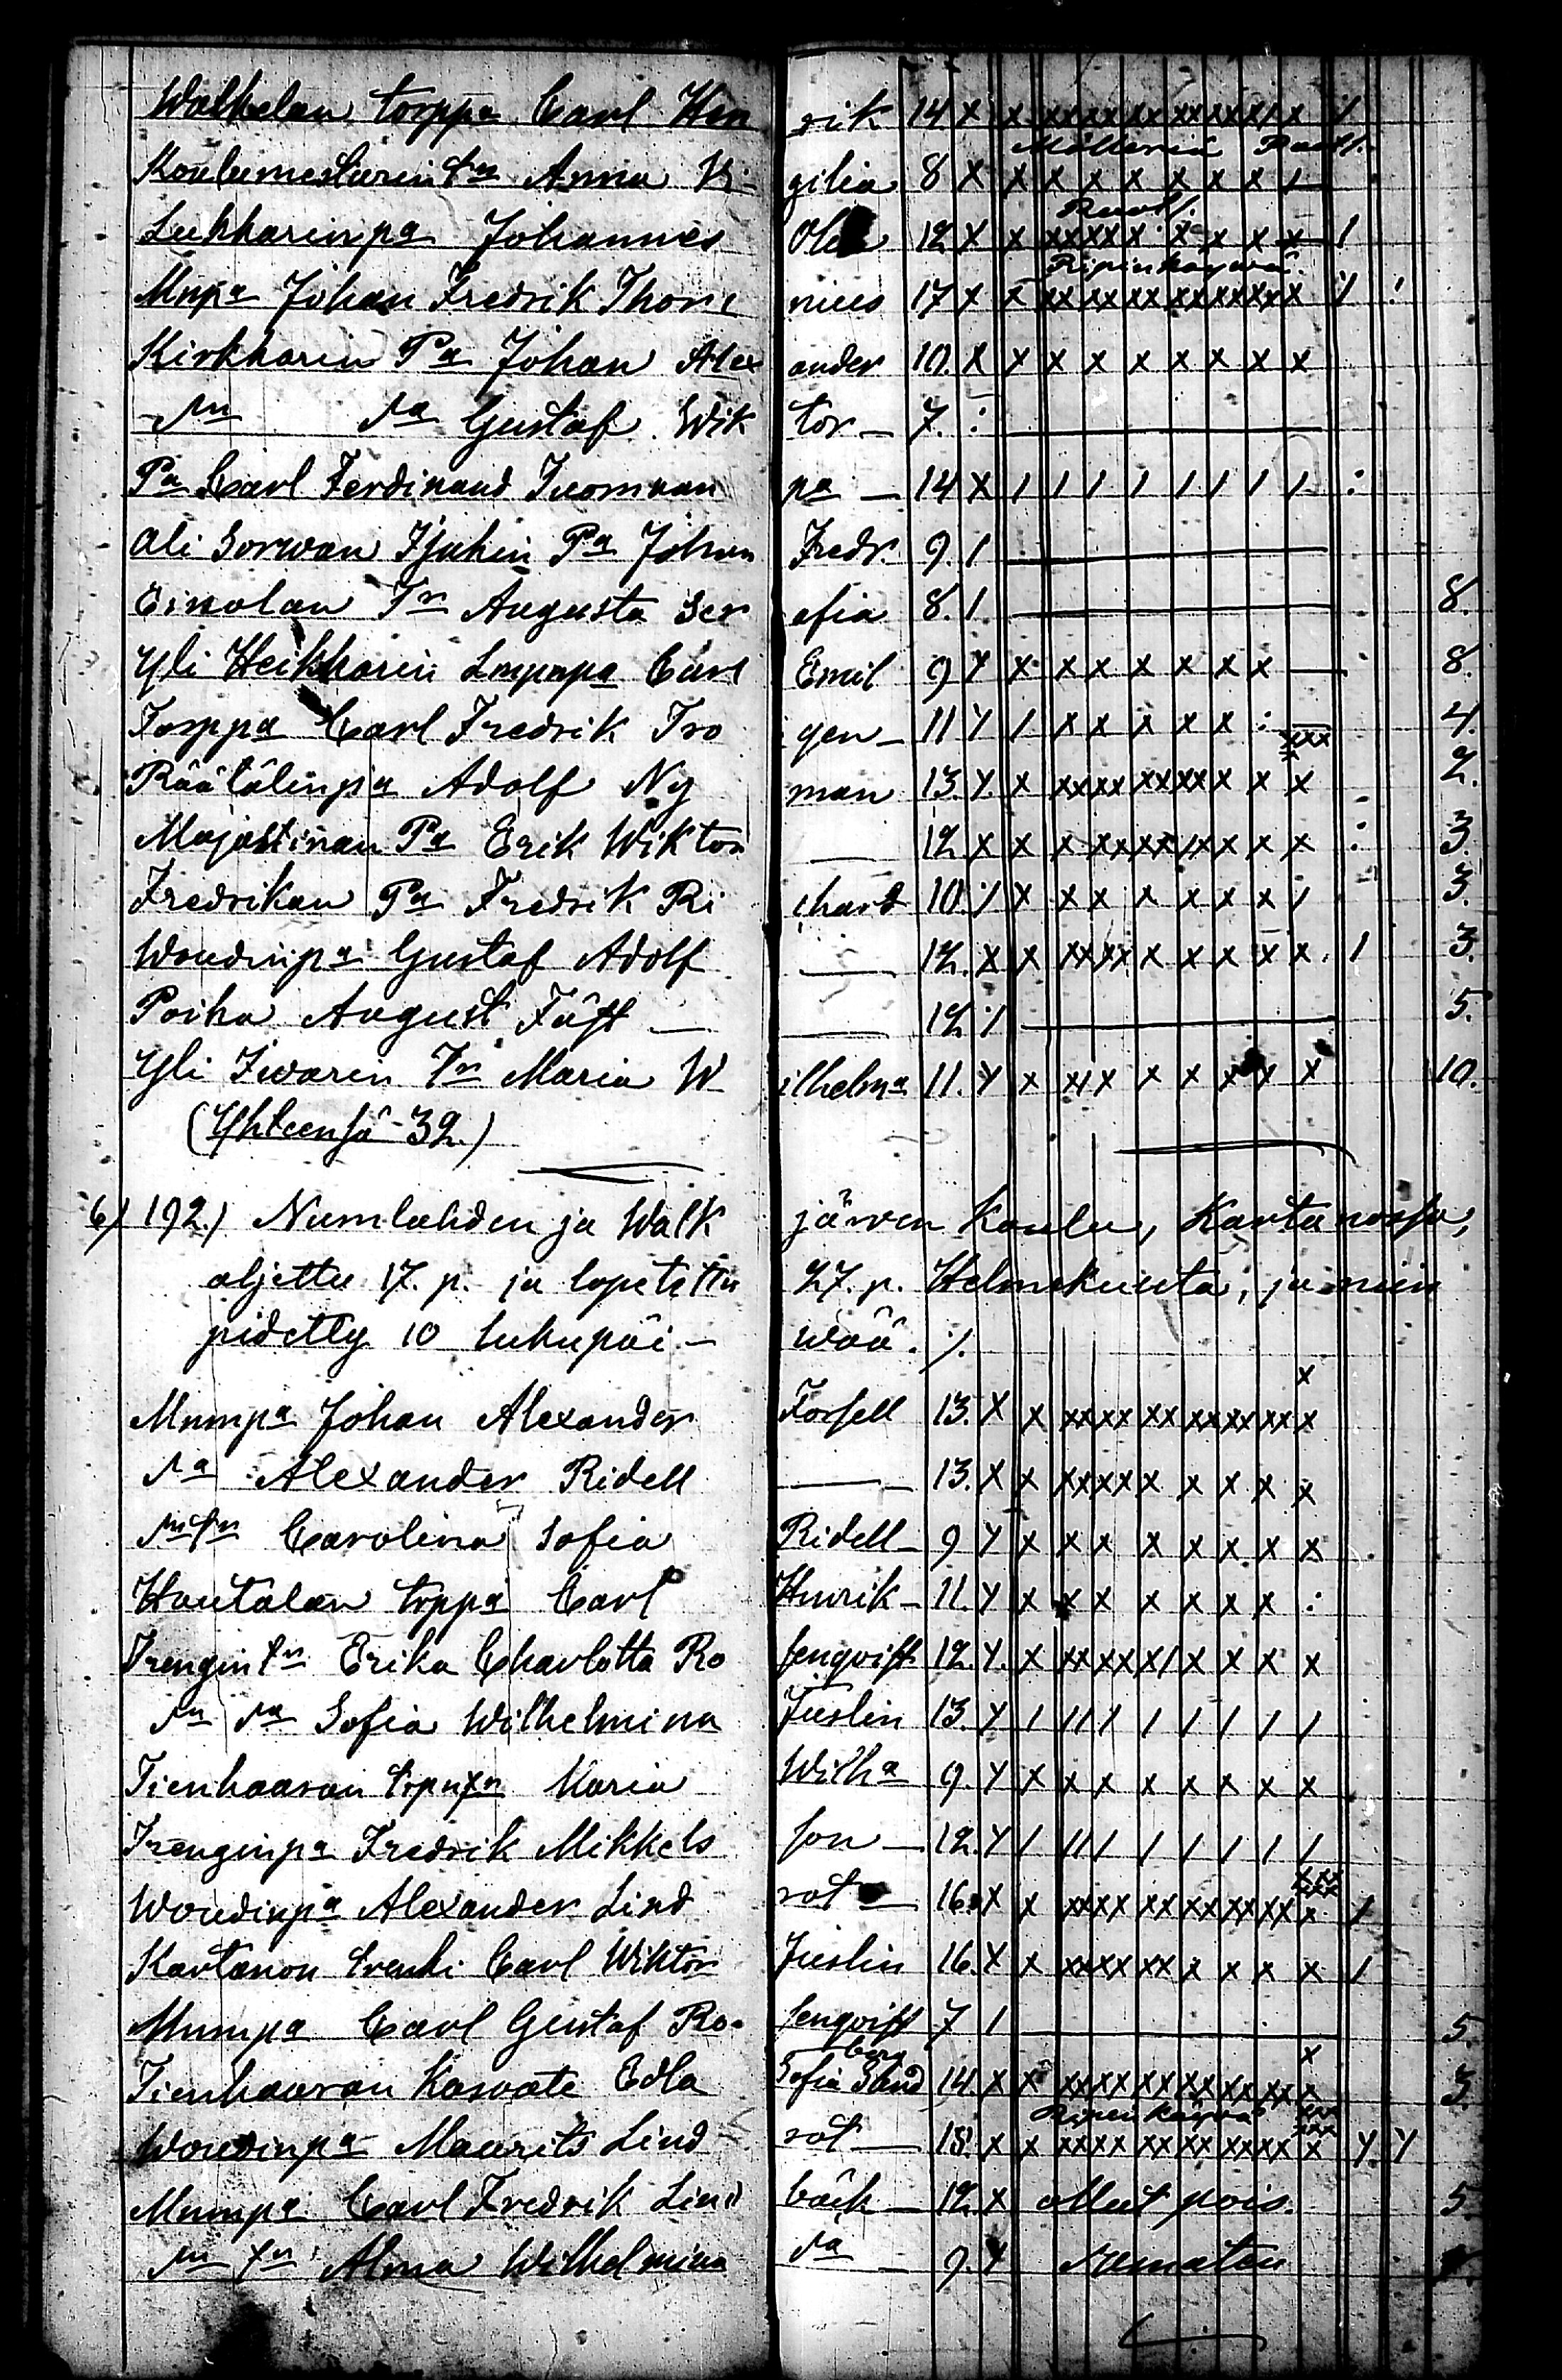 Walkelan torppa Carl Hen rik 14 x x xx xx xx xx xx x/ x /
Koulumesturin tr Anna Vi- gilia 8 x x x x x x x x /
Lukkarinpa Johannes 12 x x xx xx x x x x x /
Ripinkäywä
Mnpa Johan Fredrik Thore nius 17 x x xx xx xx xx xx xx x /
Kirkkarin Pa Johan Alex ander 10. x x x x x x x x x
Gustaf Wik tor — 7. :
Pa Carl Ferdinand Tuomaan pa — 14 x / / / / / / / / :
Ali Sorwan Pa Johan Fredr. 9. /
Einolan Tr Augusta Ser afia 8. / 8.
Yli Heikkarin Carl Emil 9 x x x x x x x x — 8.
Torppa Carl Fredrik Fro gen — 11 x / x x x x x : 4.
Räätälinpa Adolf Ny man 13. x x xx xx xx xx x x x 2.
Majastinan Pa Erik Wiktor — 12 x x x xx xx /x x x x : 3.
Fredrikan Pa Fredrik Ri chard 10. / x x x x x x x / 3.
Woudinpa Gustaf Adolf — 12. x x xx xx x x x x x / 3.
Poika August Täft — — 12 / 5.
Yli Iwarin Tr Maria W ilhelma 11. x x x/x x x x x x 10.
(Yhteensä - 32.)
6) 192.) Numlahden ja Walk järwen Koulu, Kartanossa,
aljettu 17. p. ja lopetettu 27. p. Helmekuuta, ja niin
pidetty 10 lukupäi- wää. /.
Mnmpa Johan Alexander Forsell 13. x x xx xx xx xx xx xx x
Alexander Ridell — 13. x x xx xx x x x x x
Carolina Sofia Ridell — 9 x x x x x x x x x
Hautalan torppa Carl Henrik — 11. x x x x x x x x :
Trengin tr Erika Charlotta Ro senqvist 12. x. x xx xx x/ x x x x
Sofia Wilhelmina Juslin 13. x / // / / / / / /
Tienhaaran Maria Wilha 9. x x x x x x x x x
Trenginpa Fredrik Mikkels son — 12. x / // / / / / / /
Woudinpa Alexander Lind rot — 16. x x xx xx xx xx xx xx x /
Kartanon trenki Carl Wiktor Juslin 16. x x xx xx xx x x x x /
Mnmpa Carl Gustaf Ro- senqvist 7 / 5.
berg
Tienhaaran Kaswate Edla Sofia Sand 14. x x xx xx xx xx xx xx x 3.
Ripin käywä
Woudinpa Maurits Lind rot — 18. x x xx xx xx xx xx xx x x x
Mnmpa Carl Fredrik Lind bäck — 12. x ollut pois. 5.
Alma Wilhelmina 9. x